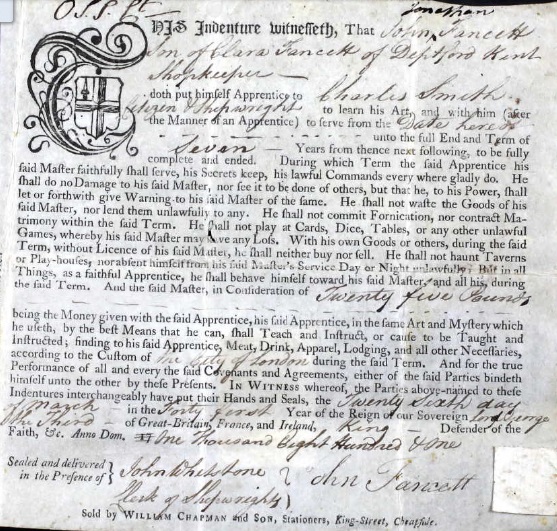 O.S.S. Pt
Jonathan
THIS Indenture witnesseth, That John Fawcett
Son of Clara Fawcett of Deptford Kent
Shopkeeper —
doth put himself Apprentice to Charles Smith
Citizen & Shipwright to learn his Art, and with him (after
the Manner of an Apprentice) to serve from the Date hereof
unto the full End and Term of
Seven — Years from thence next following, to be fully
complete and ended. During which Term the said Apprentice his
said Master faithfully shall serve, his Secrets keep, his lawful Commands every where gladly do. He
shall do no Damage to his said Master, nor see it to be done of others, but that he, to his Power, shall
let or forthwith give Warning to his said Master of the same. He shall not waste the Goods of his
said Master, nor lend them unlawfully to any. He shall not commit Fornication, nor contract Ma-
trimony within the said Term. He shall not play at Cards, Dice, Tables, or any other unlawful
Games, whereby his said Master may have any Loss. With his own Goods or others, during the said
Term, without Licence of his said Master, he shall neither buy nor sell. He shall not haunt Taverns
or Play-houses, nor absent himself from his said Master's Service Day or Night unlawfully: But in all
Things, as a faithful Apprentice, he shall behave himself toward his said Master, and all his, during
the said Term. And the said Master, in Consideration of Twenty five Pounds
being the Money given with the said Apprentice, his said Apprentice, in the same Art and Mystery which
he useth, by the best Means that he can, shall Teach and Instruct, or cause to be Taught and
Instructed; finding to his said Apprentice, Meat, Drink, Apparel, Lodging, and all other Necessaries,
according to the Custom of the City of London during the said Term. And for the true
Performance of all and every the said Covenants and Agreements, either of the said Parties bindeth
himself unto the other by these Presents. IN WITNESS whereof, the Parties above-named to these
Indentures interchangeably have put their Hands and Seals, the Twenty Sixth day
of March in the Forty first Year of the Reign of our Sovereign Lord George
the Third — of Great-Britain, France, and Ireland, King — Defender of the
Faith, &c. Anno Dom. 17 One Thousand Eight Hundred & One
Sealed and delivered } John Whitstone } John Fawcett
in the Presence of } Clerk of Shipwrights }
Sold by WILLIAM CHAPMAN and SON, Stationers, King-Street, Cheapside.